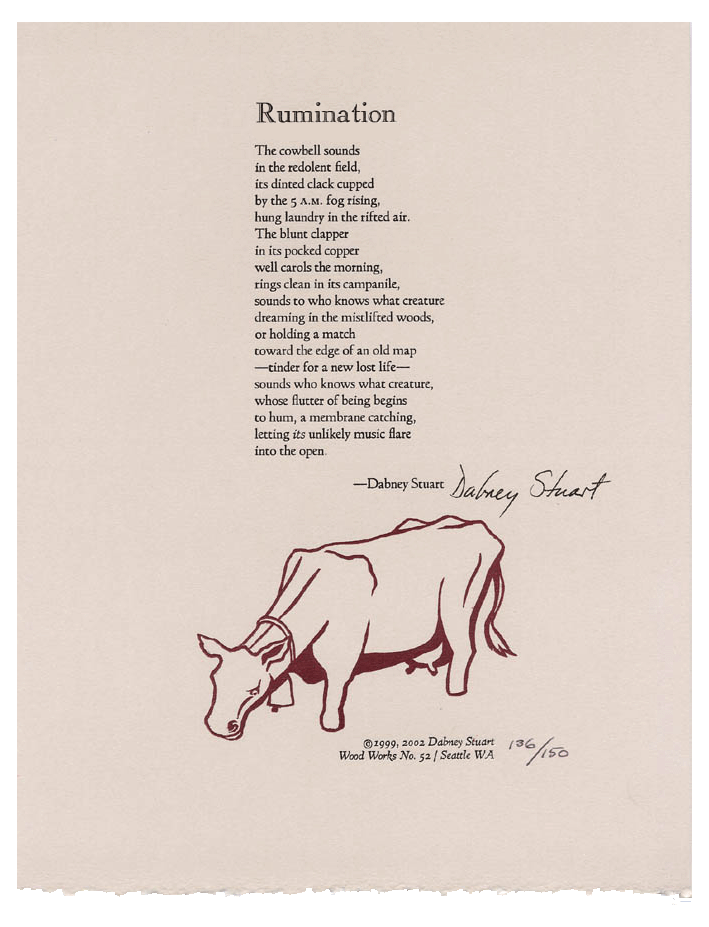 Rumination
The cowbell sounds
in the redolent field,
its dinted clack cupped
by the 5 A.M. fog rising,
hung laundry in the rifted air.
The blunt clapper
in its pocked copper
well carols the morning,
rings clean in its campanile,
sounds to who knows what creature
dreaming in the mistlifted woods,
or holding a match
toward the edge of an old map
—tinder for a new lost life—
sounds who knows what creature,
whose flutter of being begins
to hum, a membrane catching,
letting its unlikely music flare
into the open.
—Dabney Stuart Dabney Stuart
©1999, 2002 Dabney Stuart 136/150
Wood Works No. 52 / Seattle WA